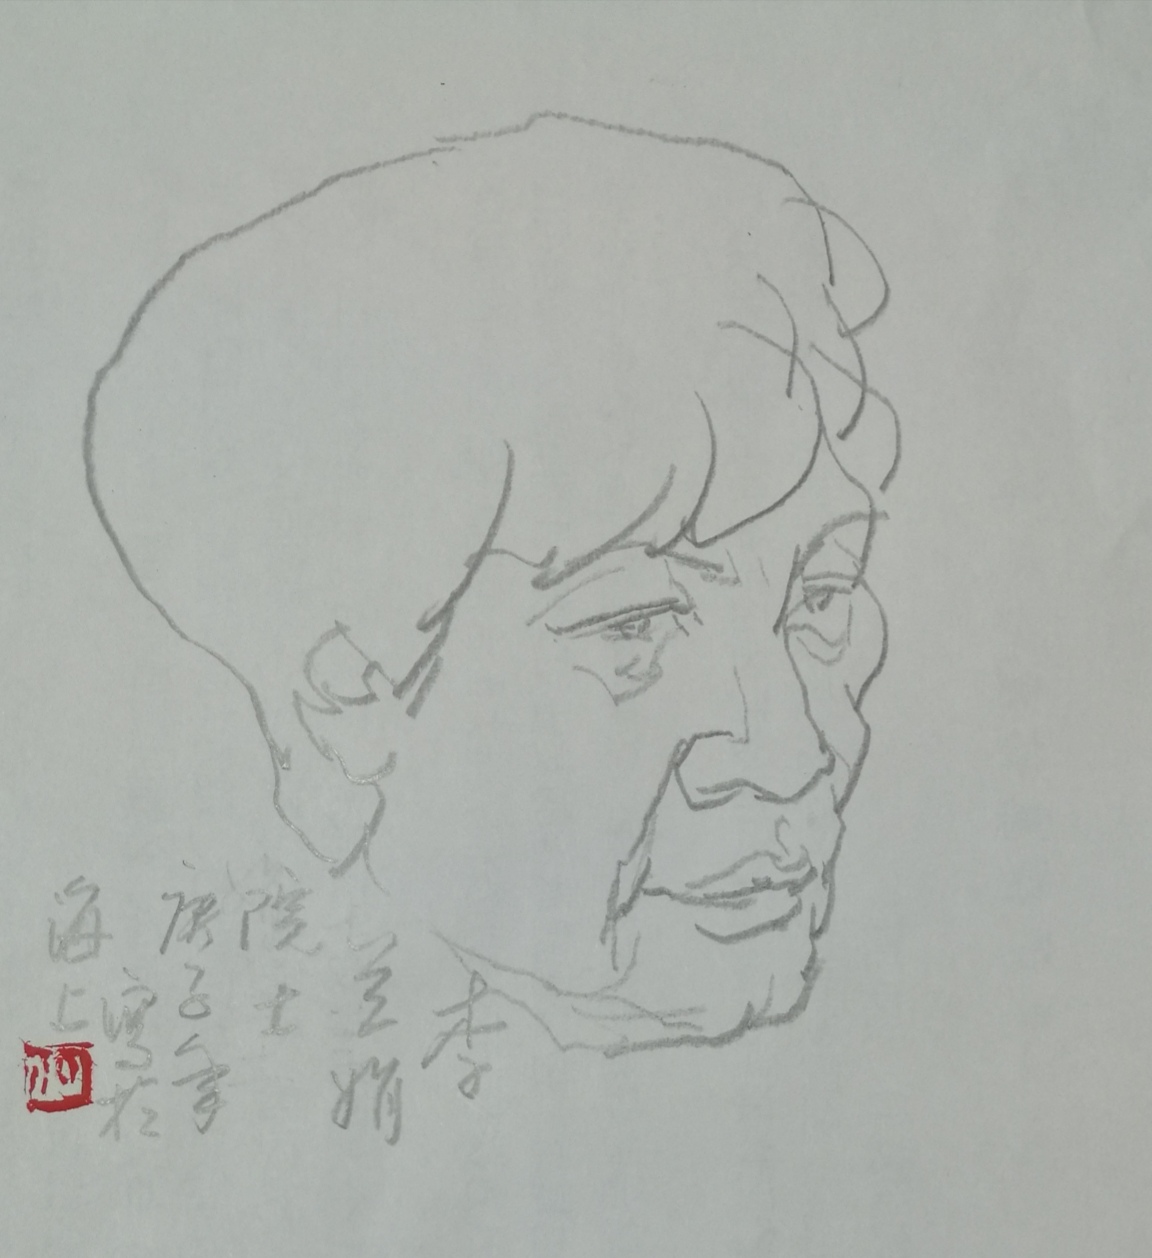 李
兰娟
院士
庚子年
写於
海上